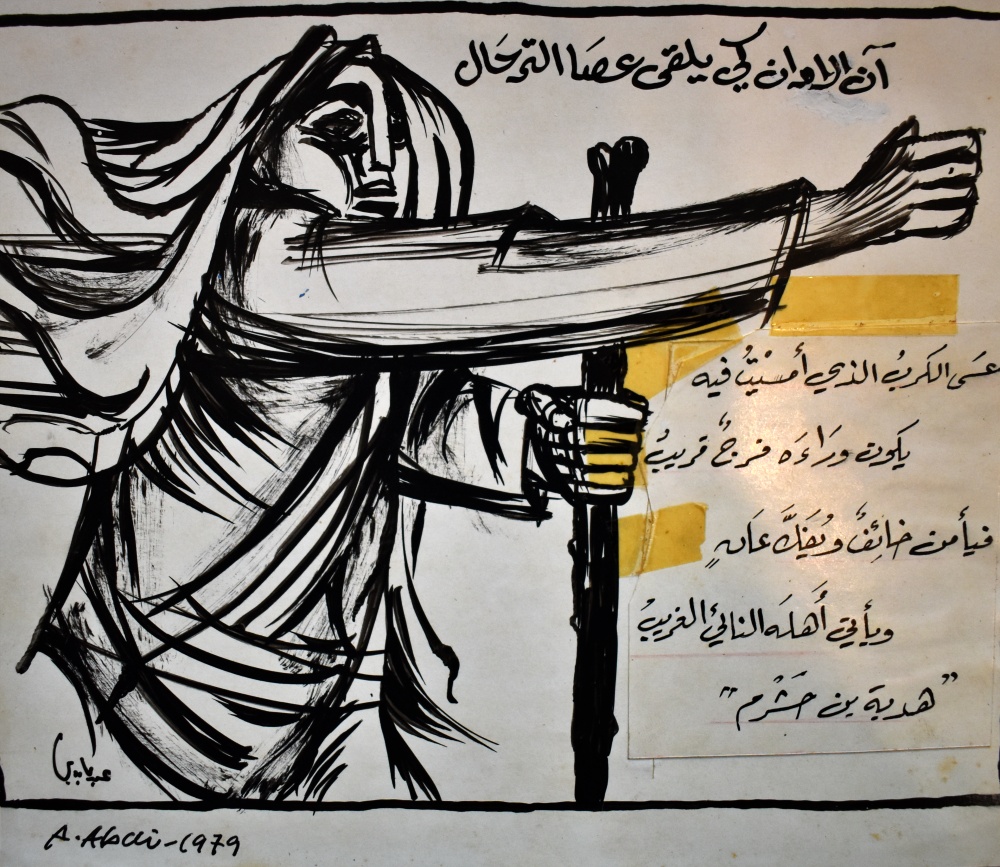 آن الاوان كي يلقى عصَا الترحَال
عسَى الكربُ الذي أمسْيتُ فيه
يكون ورَاءَه فرجٌ قريبُ
فيأمن خائِفٌ ويُفَكَّ عَانٍ
ويأتي أُهلَه النائي الغريبُ
"هدبة بن خَشْرم"
عبد عابدي
A. Abdi-1979